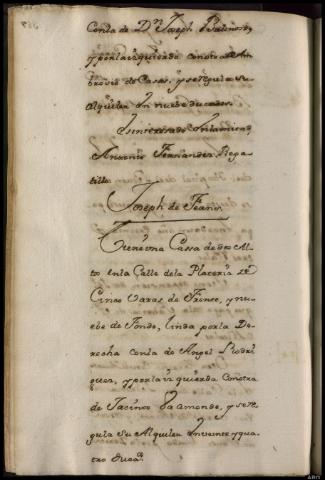 Con la de Dn. Joseph
y por la izquierda con otra de Am
brosio de Casas, y se regula su
Alquiler en nueve ducados.
Antonio Fernandez Rega
tillo
Joseph de Feans
Tiene una Cassa de un Al-
to en la Calle de la Plateria de
Cinco Varas de Frente, y nu-
ebe de Fondo, linda por la De-
recha con la de Angel Rodri
guez, y por la izquierda con otra
de Jacinto Bamonde, y se re
gula su Alquiler en veinte y qua-
tro ducados